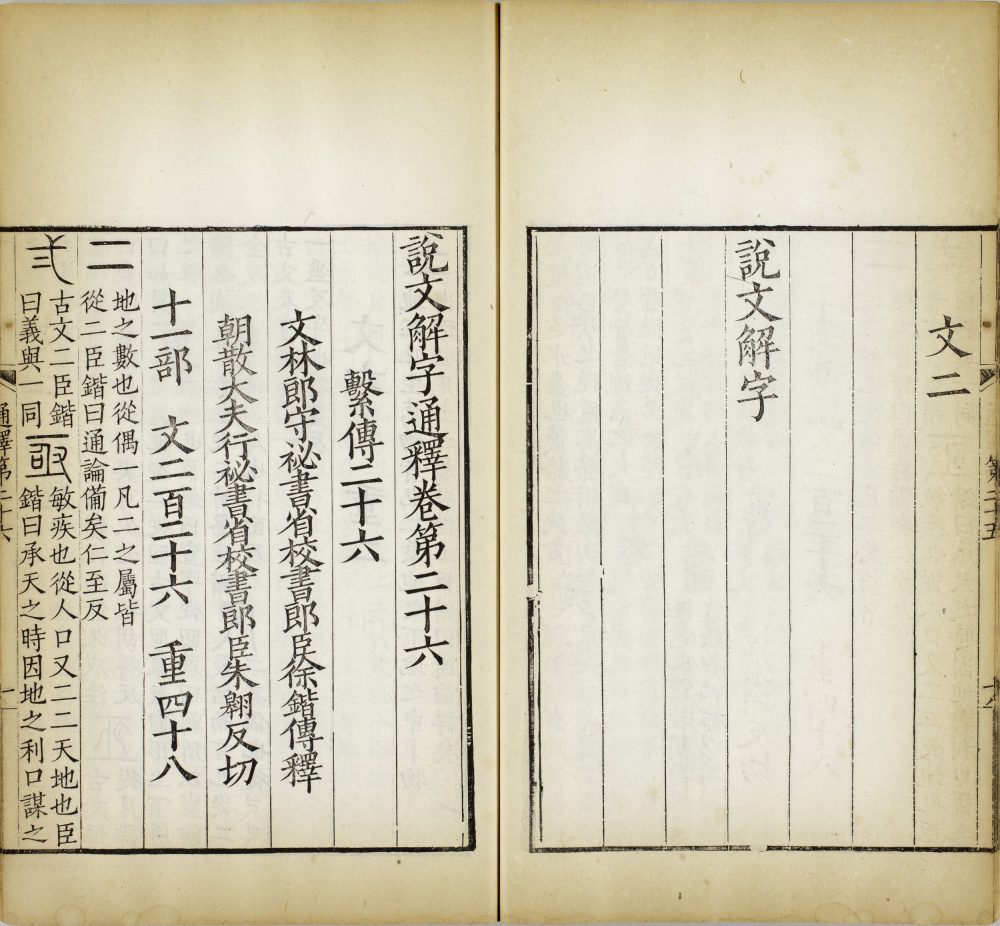 文二
說文解字
第二十五
說文解字通釋卷第二十六
繫傳二十六
文林郎守祕書省校書郎臣徐鍇傳釋
朝散大夫行祕書省校書郎臣朱翱反切
十一部 文二百二十六 重四十八
二 地之數也從偶一凡二之屬皆
從二臣鍇曰通論備矣仁至反
弍 古文二臣鍇
曰義與一同
亟 敏疾也從人口又二二天地也臣
鍇曰承天之時因地之利口謀之
通釋第二十六
一